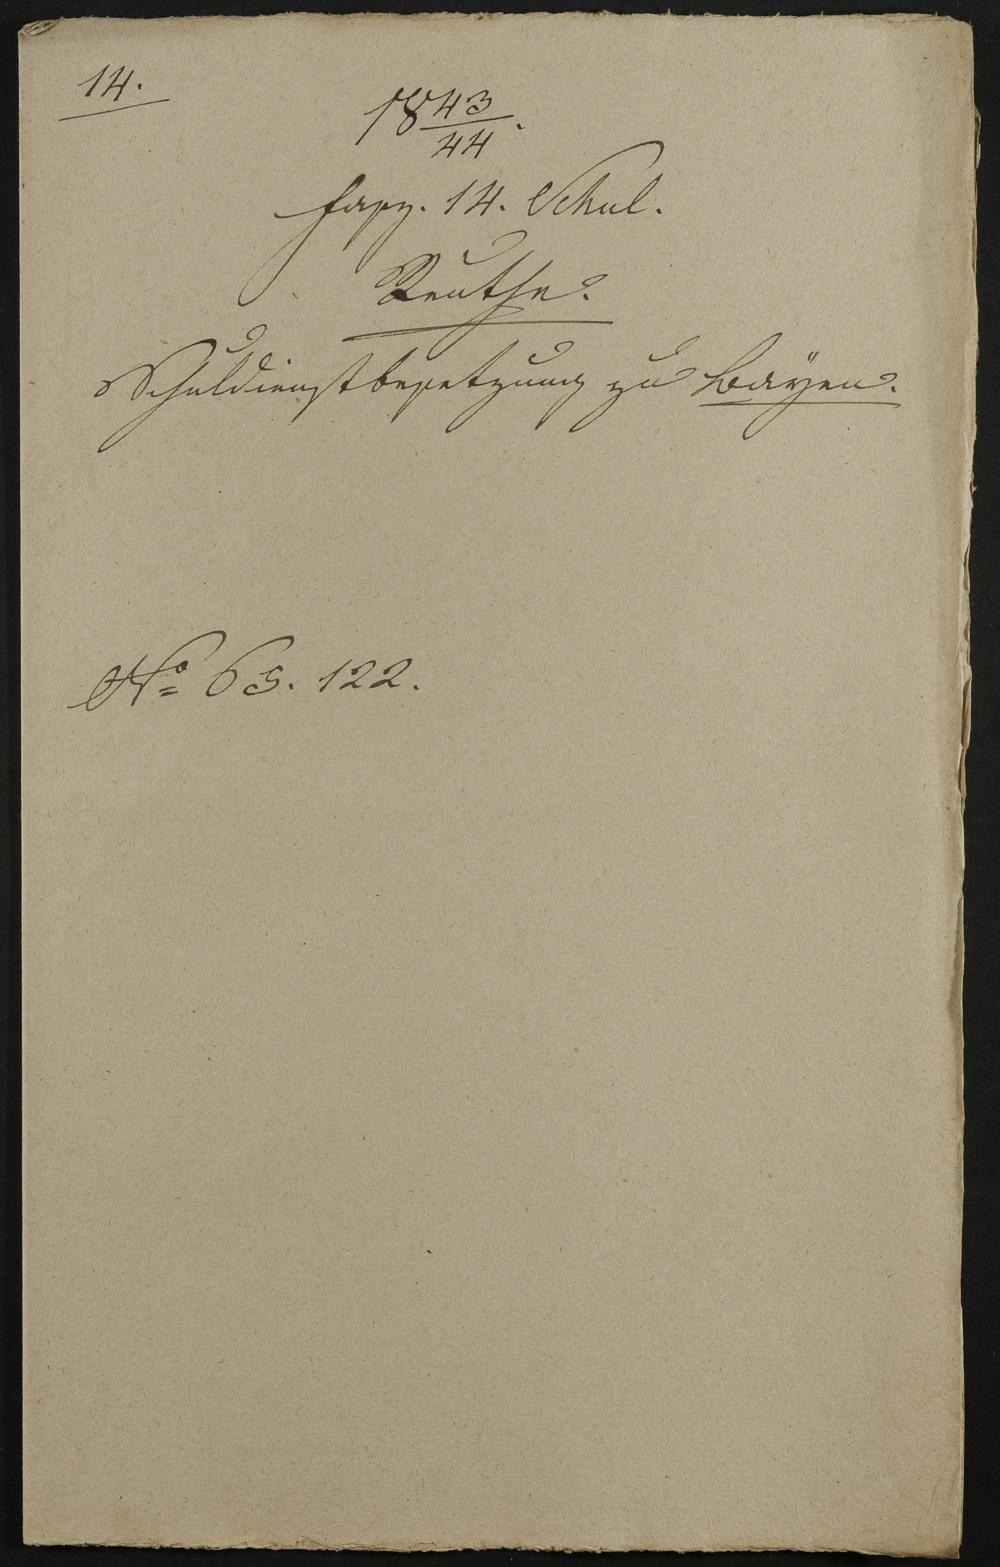 14.
18 43/44.
Fasz. 14. Schul.
Reuthe.
Schuldienstbesetzung zu
No 65. 122.